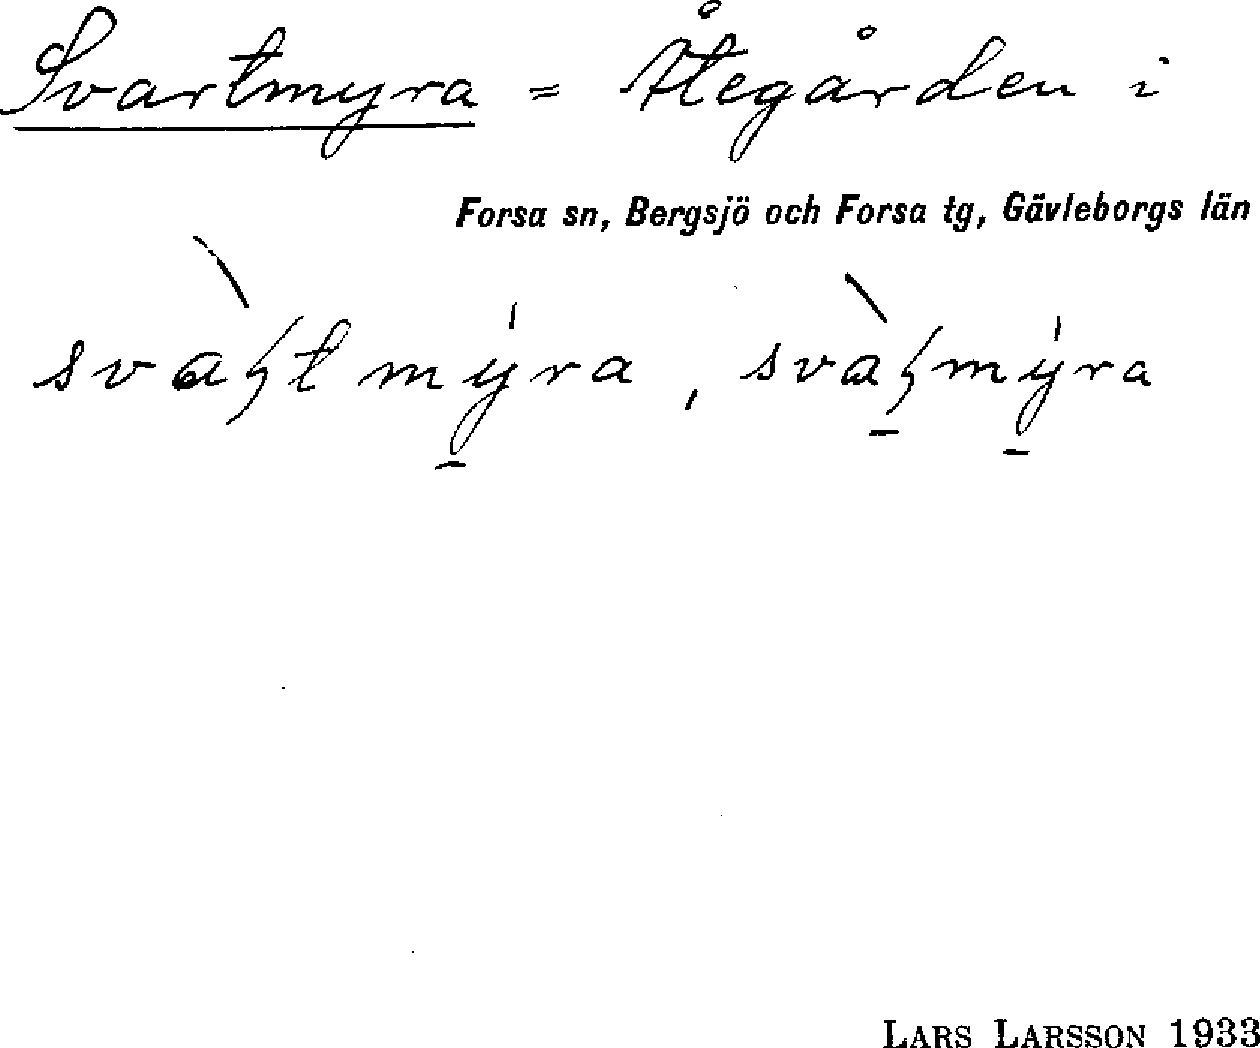 Svartmyra = Åtegården i
Forsa sn, Bergsjö och Forsa tg, Gävleborgs län
svàʂtmýra, svàʂmýra
LARS LARSSON 1933